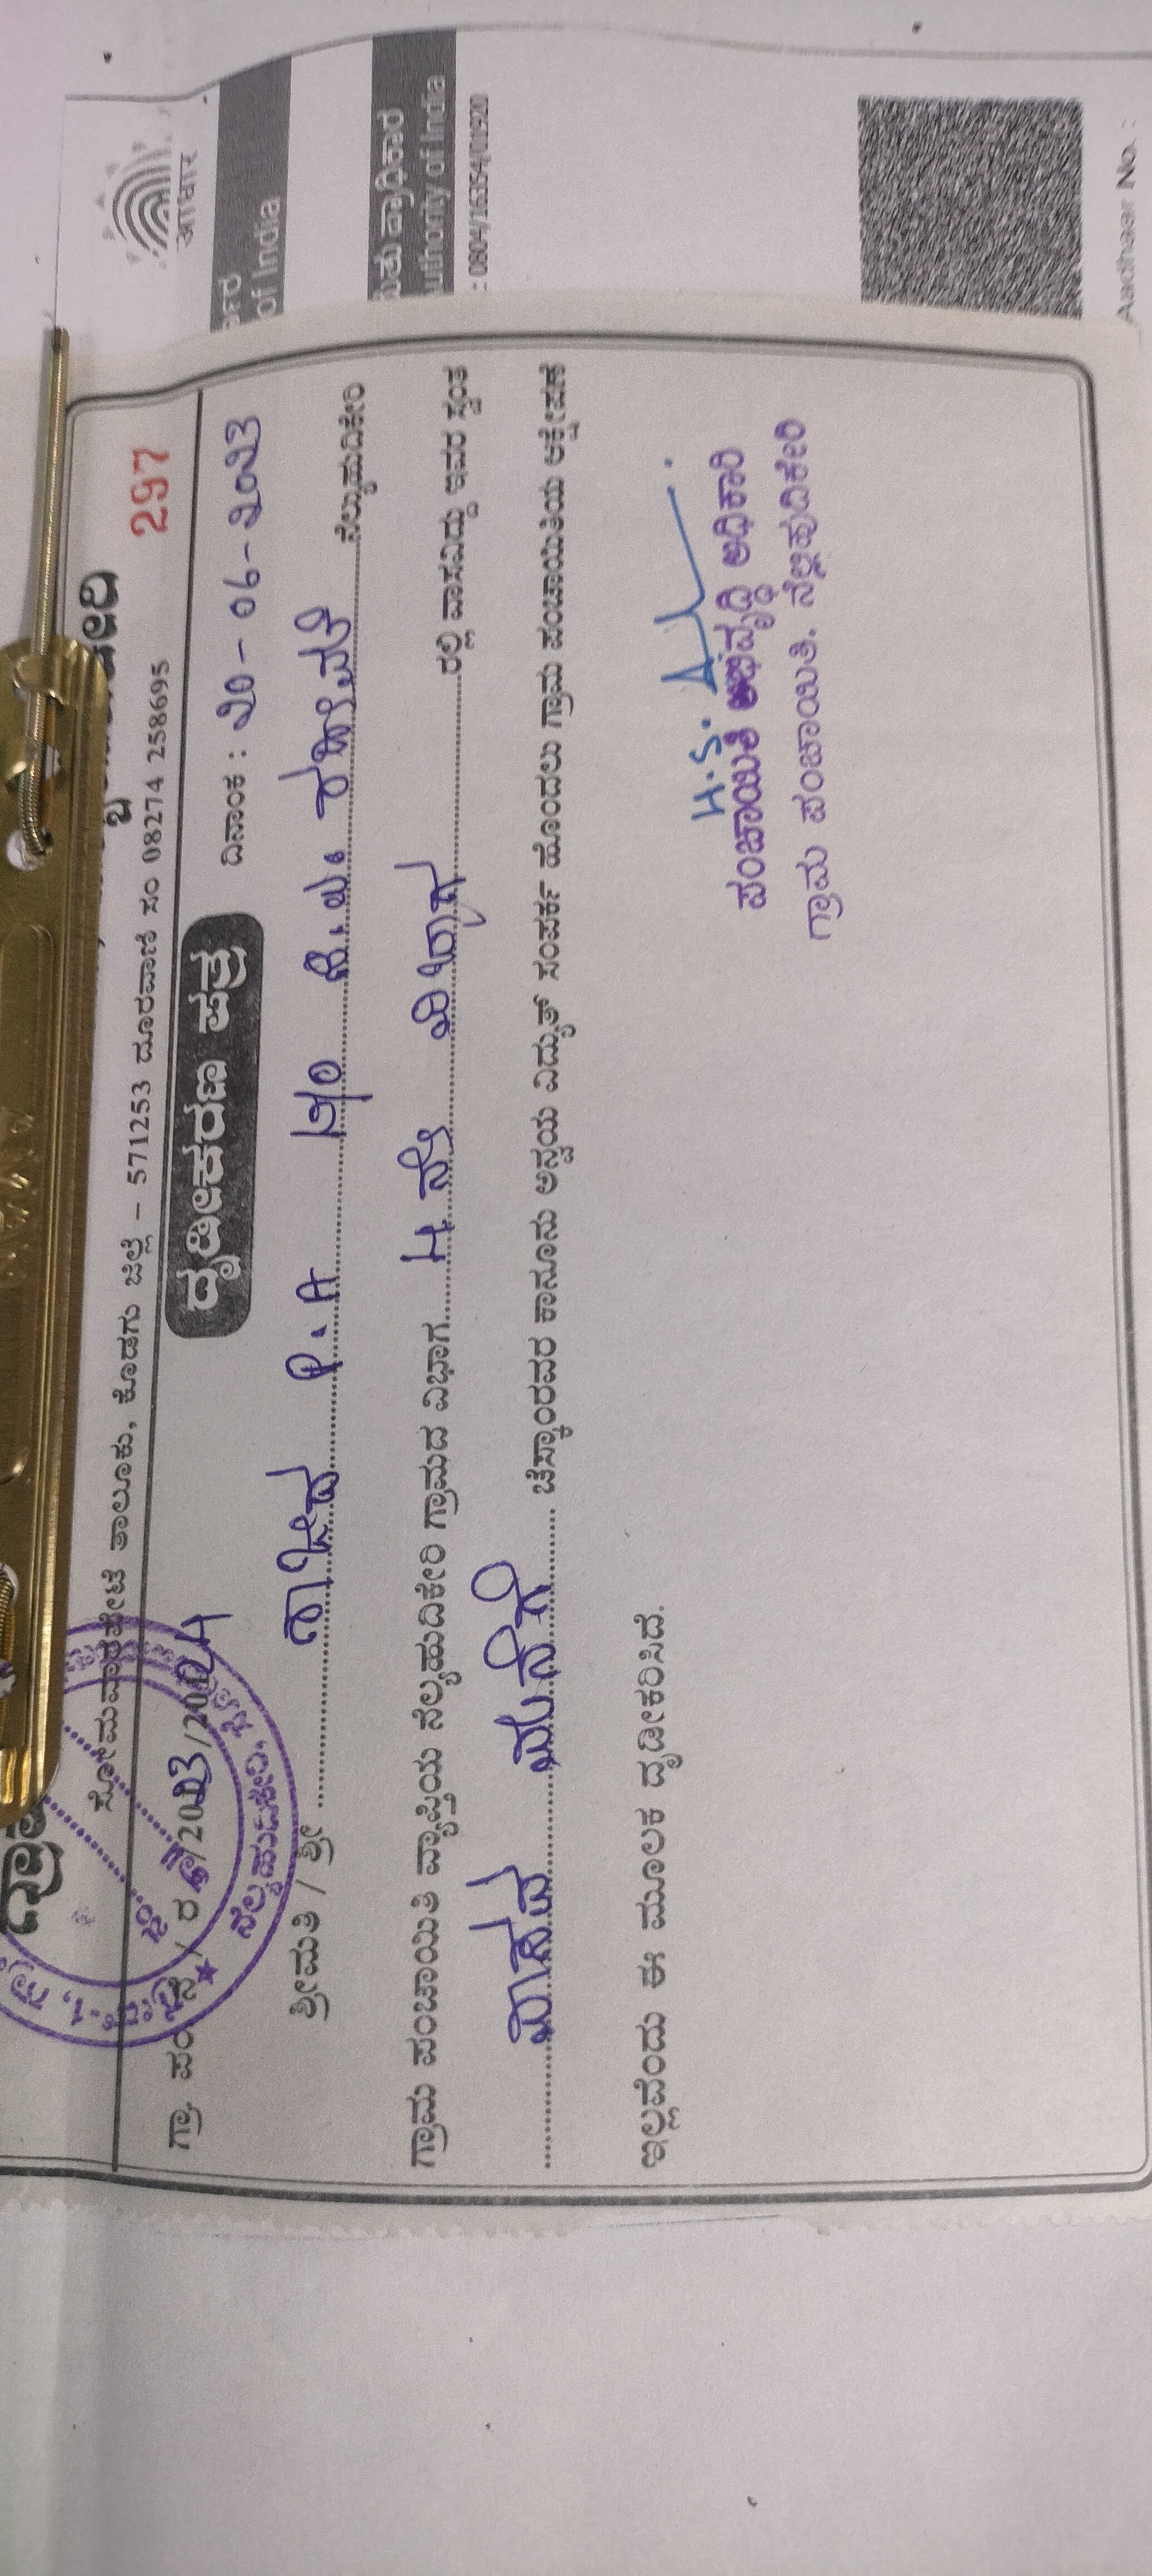 ಸೋಮವಾರಪೇಟೆ ತಾಲೂಕು, ಕೊಡಗು ಜಿಲ್ಲೆ – 571253 ದೂರವಾಣಿ ಸಂ 08274 258695
297
ದೃಢೀಕರಣ ಪತ್ರ
ಗ್ರಾ. ಪಂ. ನೆ / ರ /2023/2024
ದಿನಾಂಕ : 20-06-2023
ಶ್ರೀಮತಿ / ಶ್ರೀ P.A ನೆಲ್ಯಹುದಿಕೇರಿ
ಗ್ರಾಮ ಪಂಚಾಯಿತಿ ವ್ಯಾಪ್ತಿಯ ನೆಲ್ಯಹುದಿಕೇರಿ ಗ್ರಾಮದ ವಿಭಾಗ 4 ನೇ ವಿಭಾಗ ರಲ್ಲಿ ವಾಸವಿದ್ದು ಇವರ ಸ್ವಂತ
ವಾಸದ ಮನೆಗೆ ಚೆಸ್ಕಾಂರವರ ಕಾನೂನು ಅನ್ವಯ ವಿದ್ಯುತ್ ಸಂಪರ್ಕ ಹೊಂದಲು ಗ್ರಾಮ ಪಂಚಾಯಿತಿಯ ಆಕ್ಷೇಪಣೆ
ಇಲ್ಲವೆಂದು ಈ ಮೂಲಕ ದೃಢೀಕರಿಸಿದೆ.
H.S.
ಪಂಚಾಯಿತಿ ಅಭಿವೃದ್ಧಿ ಅಧಿಕಾರಿ
ಗ್ರಾಮ ಪಂಚಾಯಿತಿ. ನೆಲ್ಲಹುದಿಕೇರಿ
आधार
of India
ಪ್ರಾಧಿಕಾರ
uthority of India
: 0804/16354/01920
Aadhaar No. :